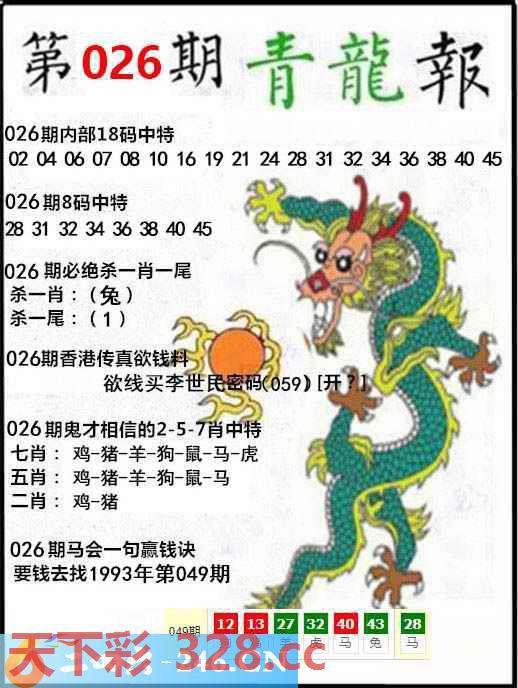 第026期青龍報
026期内部18码中特
02 04 06 07 08 10 16 19 21 24 28 31 32 34 36 38 40 45
026期8码中特
28 31 32 34 36 38 40 45
026期必绝杀一肖一尾
杀一肖：(兔)
杀一尾：(1)
026期香港传真欲钱料
欲线买李世民密码(059)[开?]
026期鬼才相信的2-5-7肖中特
七肖：鸡-猪-羊-狗-鼠-马-虎
五肖：鸡-猪-羊-狗-鼠-马
二肖：鸡-猪
026期马会一句赢钱诀
要钱去找1993年第049期
049期 12 13 27 32 40 43 28
羊 虎 马 兔 马
天下彩 328.cc